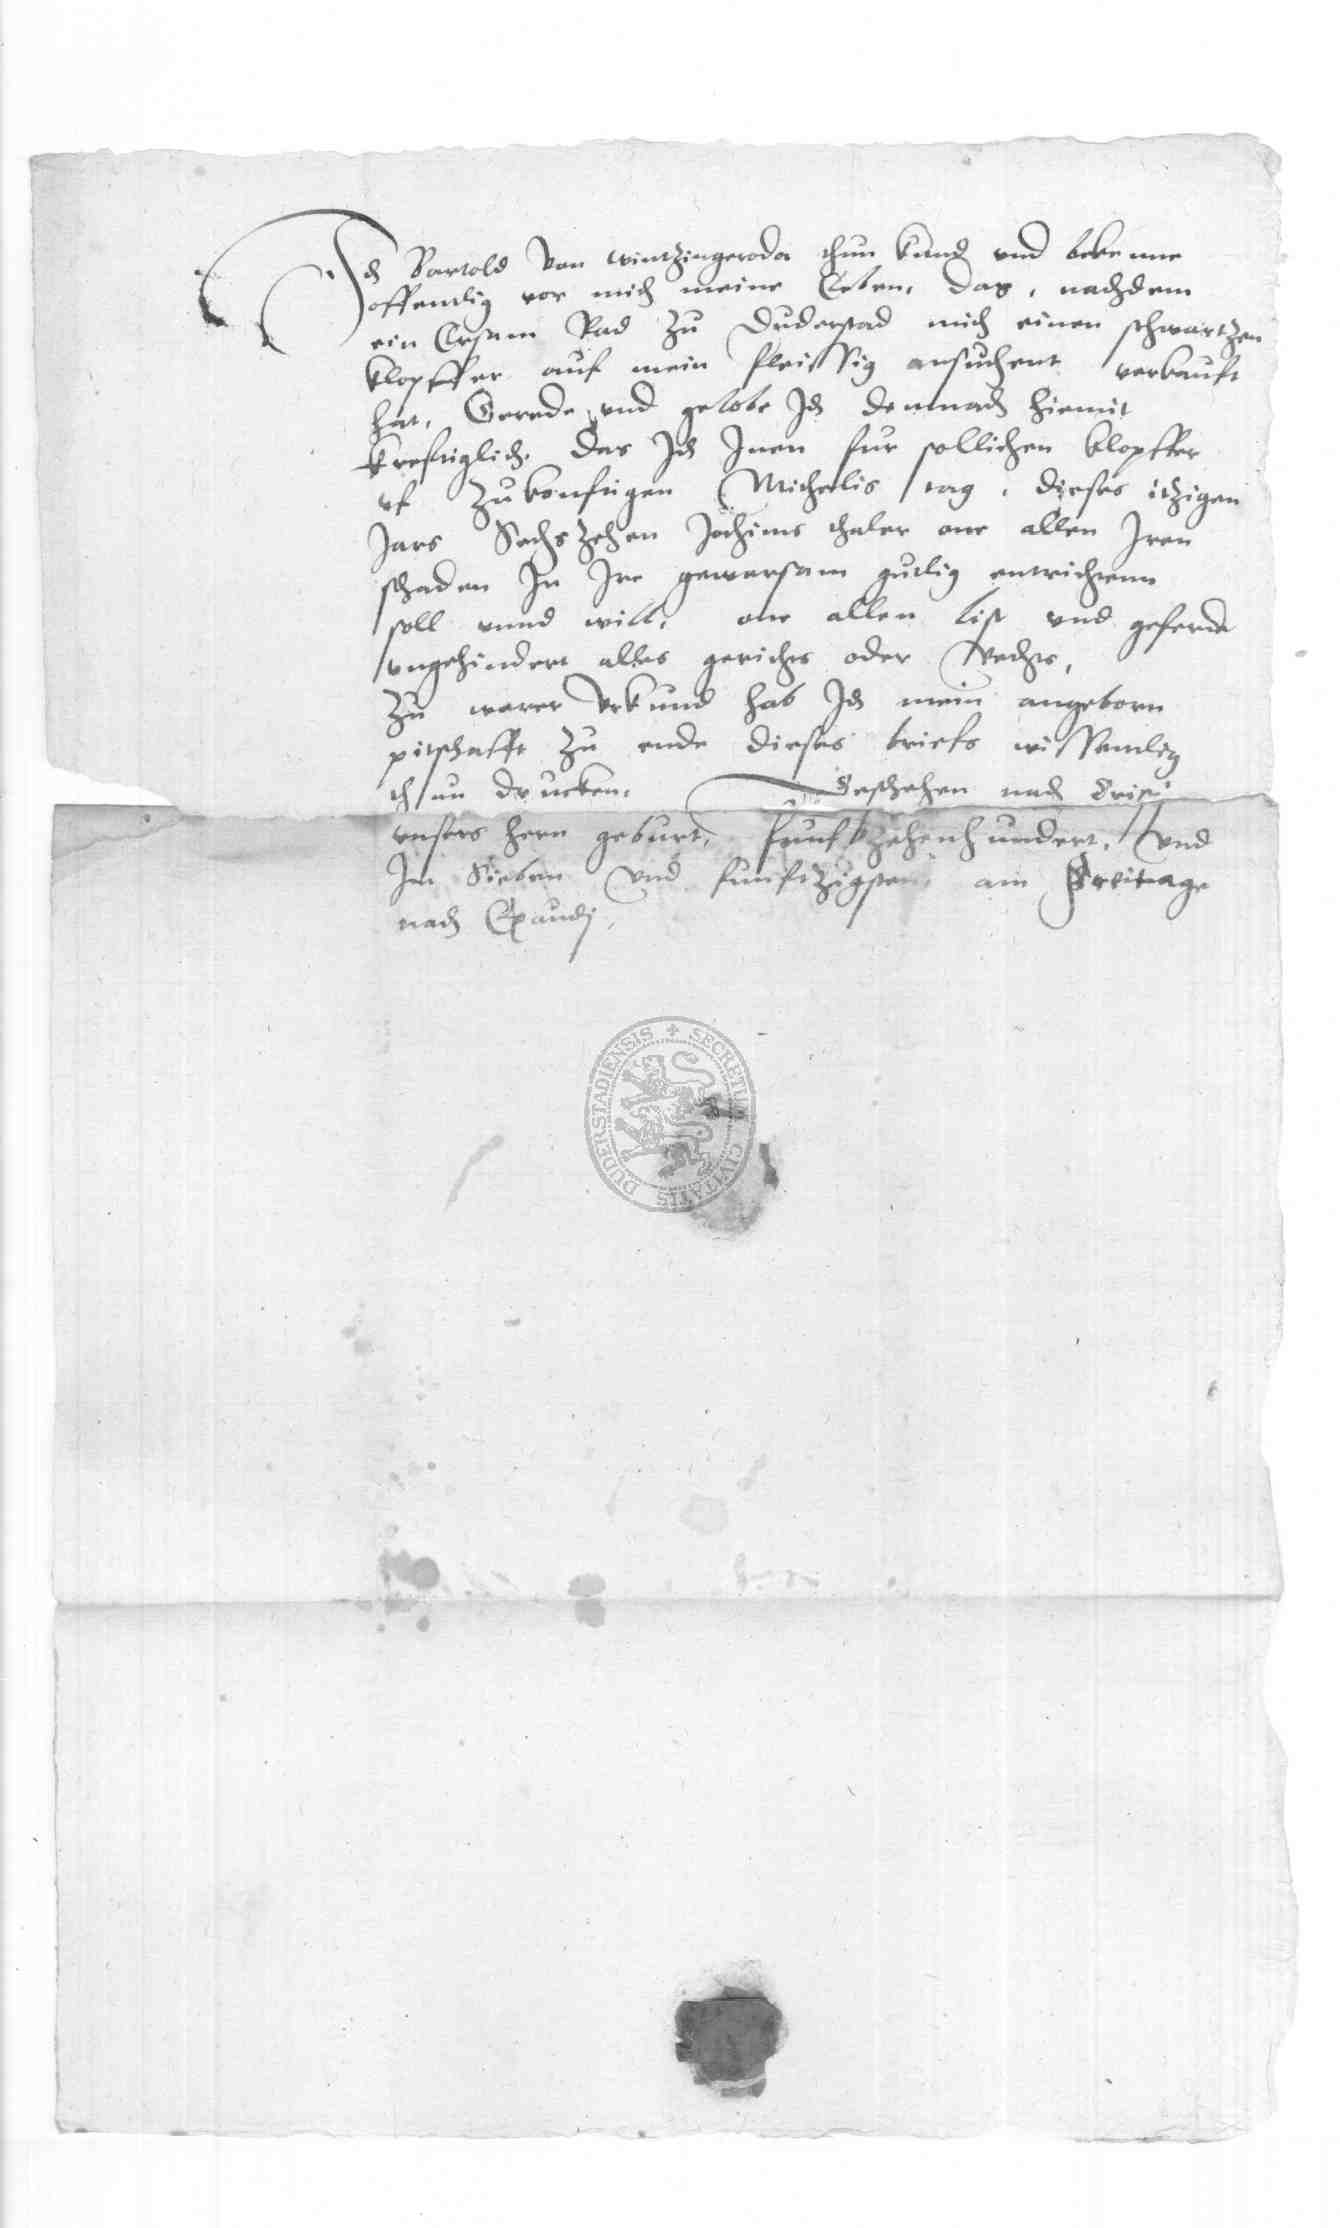 Ich Bartold von wintzingeroda thun kund vnd bekenne
offentlig vor mich meine Erben, das, nachdem
ein Ersam Rad zu Duderstad mich einen schwartzen
klopffer auf mein fleissig ansuchent verkauft
hat, Gerede vnd gelobe Ich demnach hiemit
kreftiglich, das Ich Inen fur sollichen klopffer
vf zukonftigen Michelis tag, dieses itzigen
Jars Sechszehen Jochims thaler one allen Iren
schaden In Ire gewarsam gutlig entrichtenn
soll vnnd will, one allen list vnd geferde
vngehindert alles gerichts oder Rechts,
Zu warer Vrkund hab Ich mein angeborn
pitschafft zu ende dieses briefs wissentlig
thun drucken, Geschehen nach Cristi
vnsers hern geburt, funfzehenhundert, vnd
Im Sieben vnd funftzigsten, am Freitage
nach Exaudj,
SECRETUM CIVITATIS DUDERSTADIENSIS